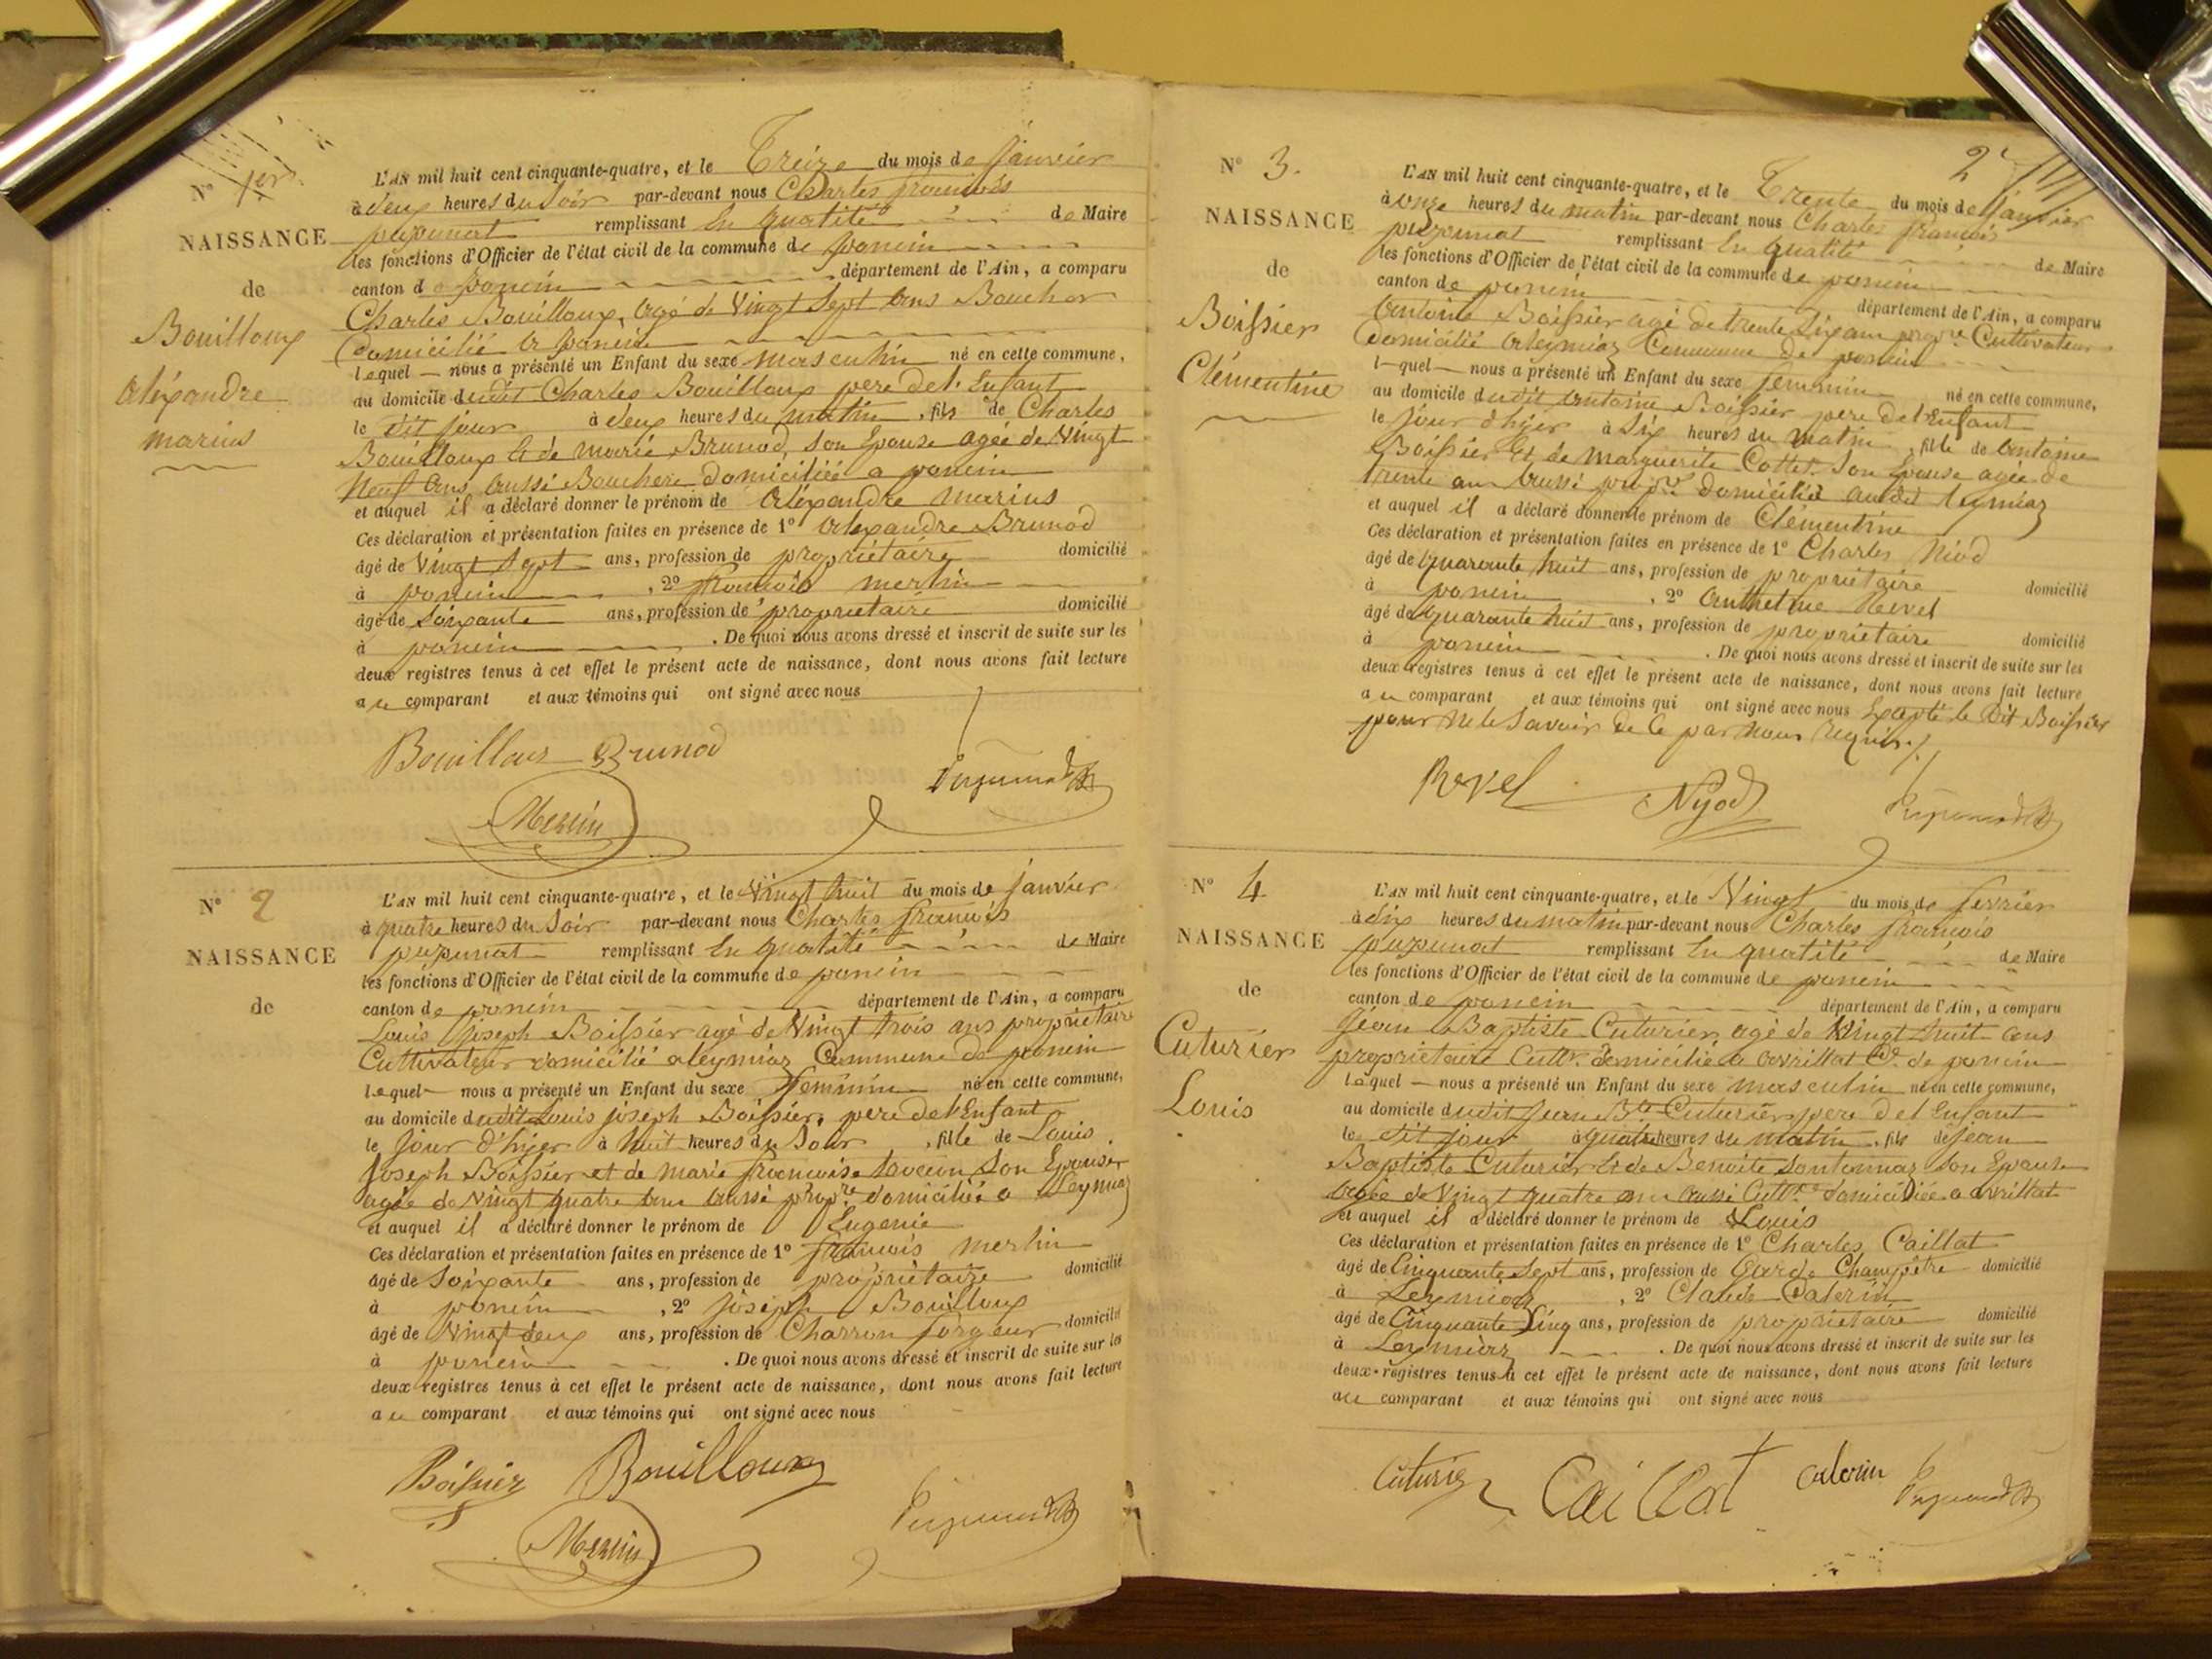 N° 1er
NAISSANCE
de
Bouilloux
Aléxandre
marius
L'AN mil huit cent cinquante-quatre, et le Treize du mois de janvier
à deux heures du Soir par-devant nous Charles françois
pupunat remplissant En qualité de Maire
les fonctions d'Officier de l'état civil de la commune de poncin
canton de poncin département de l'Ain, a comparu
Charles Bouilloux, agé de Vingt Sept ans Boucher
Domicilié a poncin
lequel nous a présenté un Enfant du sexe masculin né en cette commune,
au domicile dudit Charles Bouilloux pere de l'Enfant
le dit jour à deux heures du matin, fils de Charles
Bouilloux et de marie Brunod, son Epouse agée de Vingt
Neuf ans aussi Bouchere domiciliée a poncin
et auquel il a déclaré donner le prénom de Aléxandre marius
Ces déclaration et présentation faites en présence de 1° Alexandre Brunod
âgé de Vingt Sept ans, profession de propriétaire domicilié
à poncin, 2° françois merlin
âgé de Soixante ans, profession de propriétaire domicilié
à poncin. De quoi nous avons dressé et inscrit de suite sur les
deux registres tenus à cet effet le présent acte de naissance, dont nous avons fait lecture
au comparant et aux témoins qui ont signé avec nous
Bouilloux Brunod
Merlin
N° 2
NAISSANCE
de
L'AN mil huit cent cinquante-quatre, et le Vingt huit du mois de janvier
à quatre heures du Soir par-devant nous Charles françois
pupunat remplissant En qualité de Maire
les fonctions d'Officier de l'état civil de la commune de poncin
canton de poncin département de l'Ain, a comparu
Louis joseph Boissier agé de Vingt trois ans propriétaire
Cultivateur domicilié a leymiaz Commune de poncin
lequel nous a présenté un Enfant du sexe feminin né en cette commune,
au domicile dudit Louis joseph Boissier, pere de l'Enfant
le jour d'hyer à huit heures du Soir, fille de Louis
joseph Boissier et de marie françoise Son Epouse
agée de Vingt quatre ans aussi propre domiciliée a Leymiaz
et auquel il a déclaré donner le prénom de Eugenie
Ces déclaration et présentation faites en présence de 1° françois merlin
âgé de Soixante ans, profession de propriétaire domicilié
à poncin, 2° joseph Bouilloux
âgé de Vingt deux ans, profession de Charron forgeur domicilié
à poncin. De quoi nous avons dressé et inscrit de suite sur les
deux registres tenus à cet effet le présent acte de naissance, dont nous avons fait lecture
au comparant et aux témoins qui ont signé avec nous
Boissier Bouilloux
Merlin
2
N° 3.
NAISSANCE
de
Boissier
Clémentine
L'AN mil huit cent cinquante-quatre, et le Trente du mois de janvier
à onze heures du matin par-devant nous Charles françois
pupunat remplissant En qualité de Maire
les fonctions d'Officier de l'état civil de la commune de poncin
canton de poncin département de l'Ain, a comparu
Antoine Boissier agé de trente Six ans propre Cultivateur
Domicilié a leymiaz Commune de poncin
lequel nous a présenté un Enfant du sexe feminin né en cette commune,
au domicile dudit antoine Boissier pere de l'Enfant
le jour d'hyer à Six heures du matin, fille de antoine
Boissier Et de marguerite Cottet Son Epouse agée de
trente ans aussi propre domiciliée audit leymiaz
et auquel il a déclaré donner le prénom de Clémentine
Ces déclaration et présentation faites en présence de 1° Charles Niod
âgé de quarante huit ans, profession de propriétaire domicilié
à poncin, 2° anthelme Revel
âgé de quarante huit ans, profession de propriétaire domicilié
à poncin. De quoi nous avons dressé et inscrit de suite sur les
deux registres tenus à cet effet le présent acte de naissance, dont nous avons fait lecture
au comparant et aux témoins qui ont signé avec nous Excepté le Dit Boissier
pour ne le Savoir de ce par nous requis
Revel Nyod
N° 4
NAISSANCE
de
Cuturier
Louis
L'AN mil huit cent cinquante-quatre, et le Vingt du mois de fevrier
à dix heures du matin par-devant nous Charles françois
pupunat remplissant En qualité de Maire
les fonctions d'Officier de l'état civil de la commune de poncin
canton de poncin département de l'Ain, a comparu
jean Baptiste Cuturier agé de Vingt huit ans
propriétaire Cultr. domicilié a avrillat Cne. de poncin
lequel nous a présenté un Enfant du sexe masculin né en cette commune,
au domicile dudit jean Bte Cuturier pere de l'Enfant
le dit jour à quatre heures du matin, fils de jean
Baptiste Cuturier Et de Benoite Son Epouse
agée de Vingt quatre ans aussi Cultr. domiciliée a avrillat
et auquel il a déclaré donner le prénom de Louis
Ces déclaration et présentation faites en présence de 1° Charles Caillat
âgé de Cinquante Sept ans, profession de Garde Champêtre domicilié
à Leymiaz, 2° Claude Calerin
âgé de Cinquante Cinq ans, profession de propriétaire domicilié
à Leymiaz. De quoi nous avons dressé et inscrit de suite sur les
deux registres tenus à cet effet le présent acte de naissance, dont nous avons fait lecture
au comparant et aux témoins qui ont signé avec nous
Cuturier Caillat Calerin